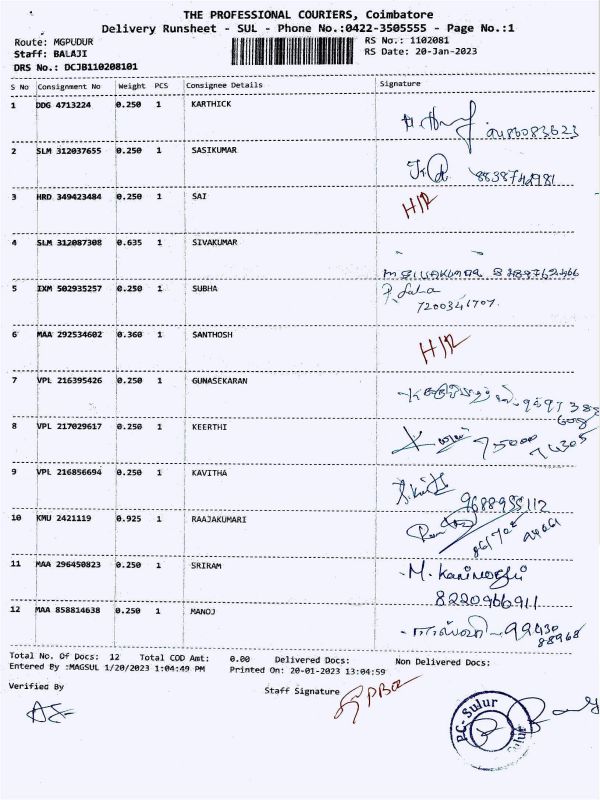 THE PROFESSIONAL COURIERS, Coimbatore
Delivery Runsheet - SUL - Phone No.:0422-3505555 - Page No.:1
Route: MGPUDUR
RS No.: 1102081
Staff: BALAJI
RS Date: 20-Jan-2023
DRS No.: DCJB110208101
S No Consignment No Weight PCS Consignee Details Signature
1 DDG 4713224 0.250 1 KARTHICK
2 SLM 312037655 0.250 1 SASIKUMAR
8838742981
3 HRD 349423484 0.250 1 SAI H/R
4 SLM 312087308 0.635 1 SIVAKUMAR
M SIVAKUMAR
5 IXM 502935257 0.250 1 SUBHA
7200341707
6 MAA 292534602 0.360 1 SANTHOSH H/R
7 VPL 216395426 0.250 1 GUNASEKARAN
8 VPL 217029617 0.250 1 KEERTHI 75000
74305
9 VPL 216856694 0.250 1 KAVITHA
9688955112
10 KMU 2421119 0.925 1 RAAJAKUMARI
11 MAA 296450823 0.250 1 SRIRAM M. Kanimozhi
8220966911
12 MAA 858814638 0.250 1 MANOJ 99430
88968
Total No. Of Docs: 12 Total COD Amt: 0.00 Delivered Docs: Non Delivered Docs:
Entered By :MAGSUL 1/20/2023 1:04:49 PM Printed On: 20-01-2023 13:04:59
Verified By Staff Signature
PC-Sulur
Sulur